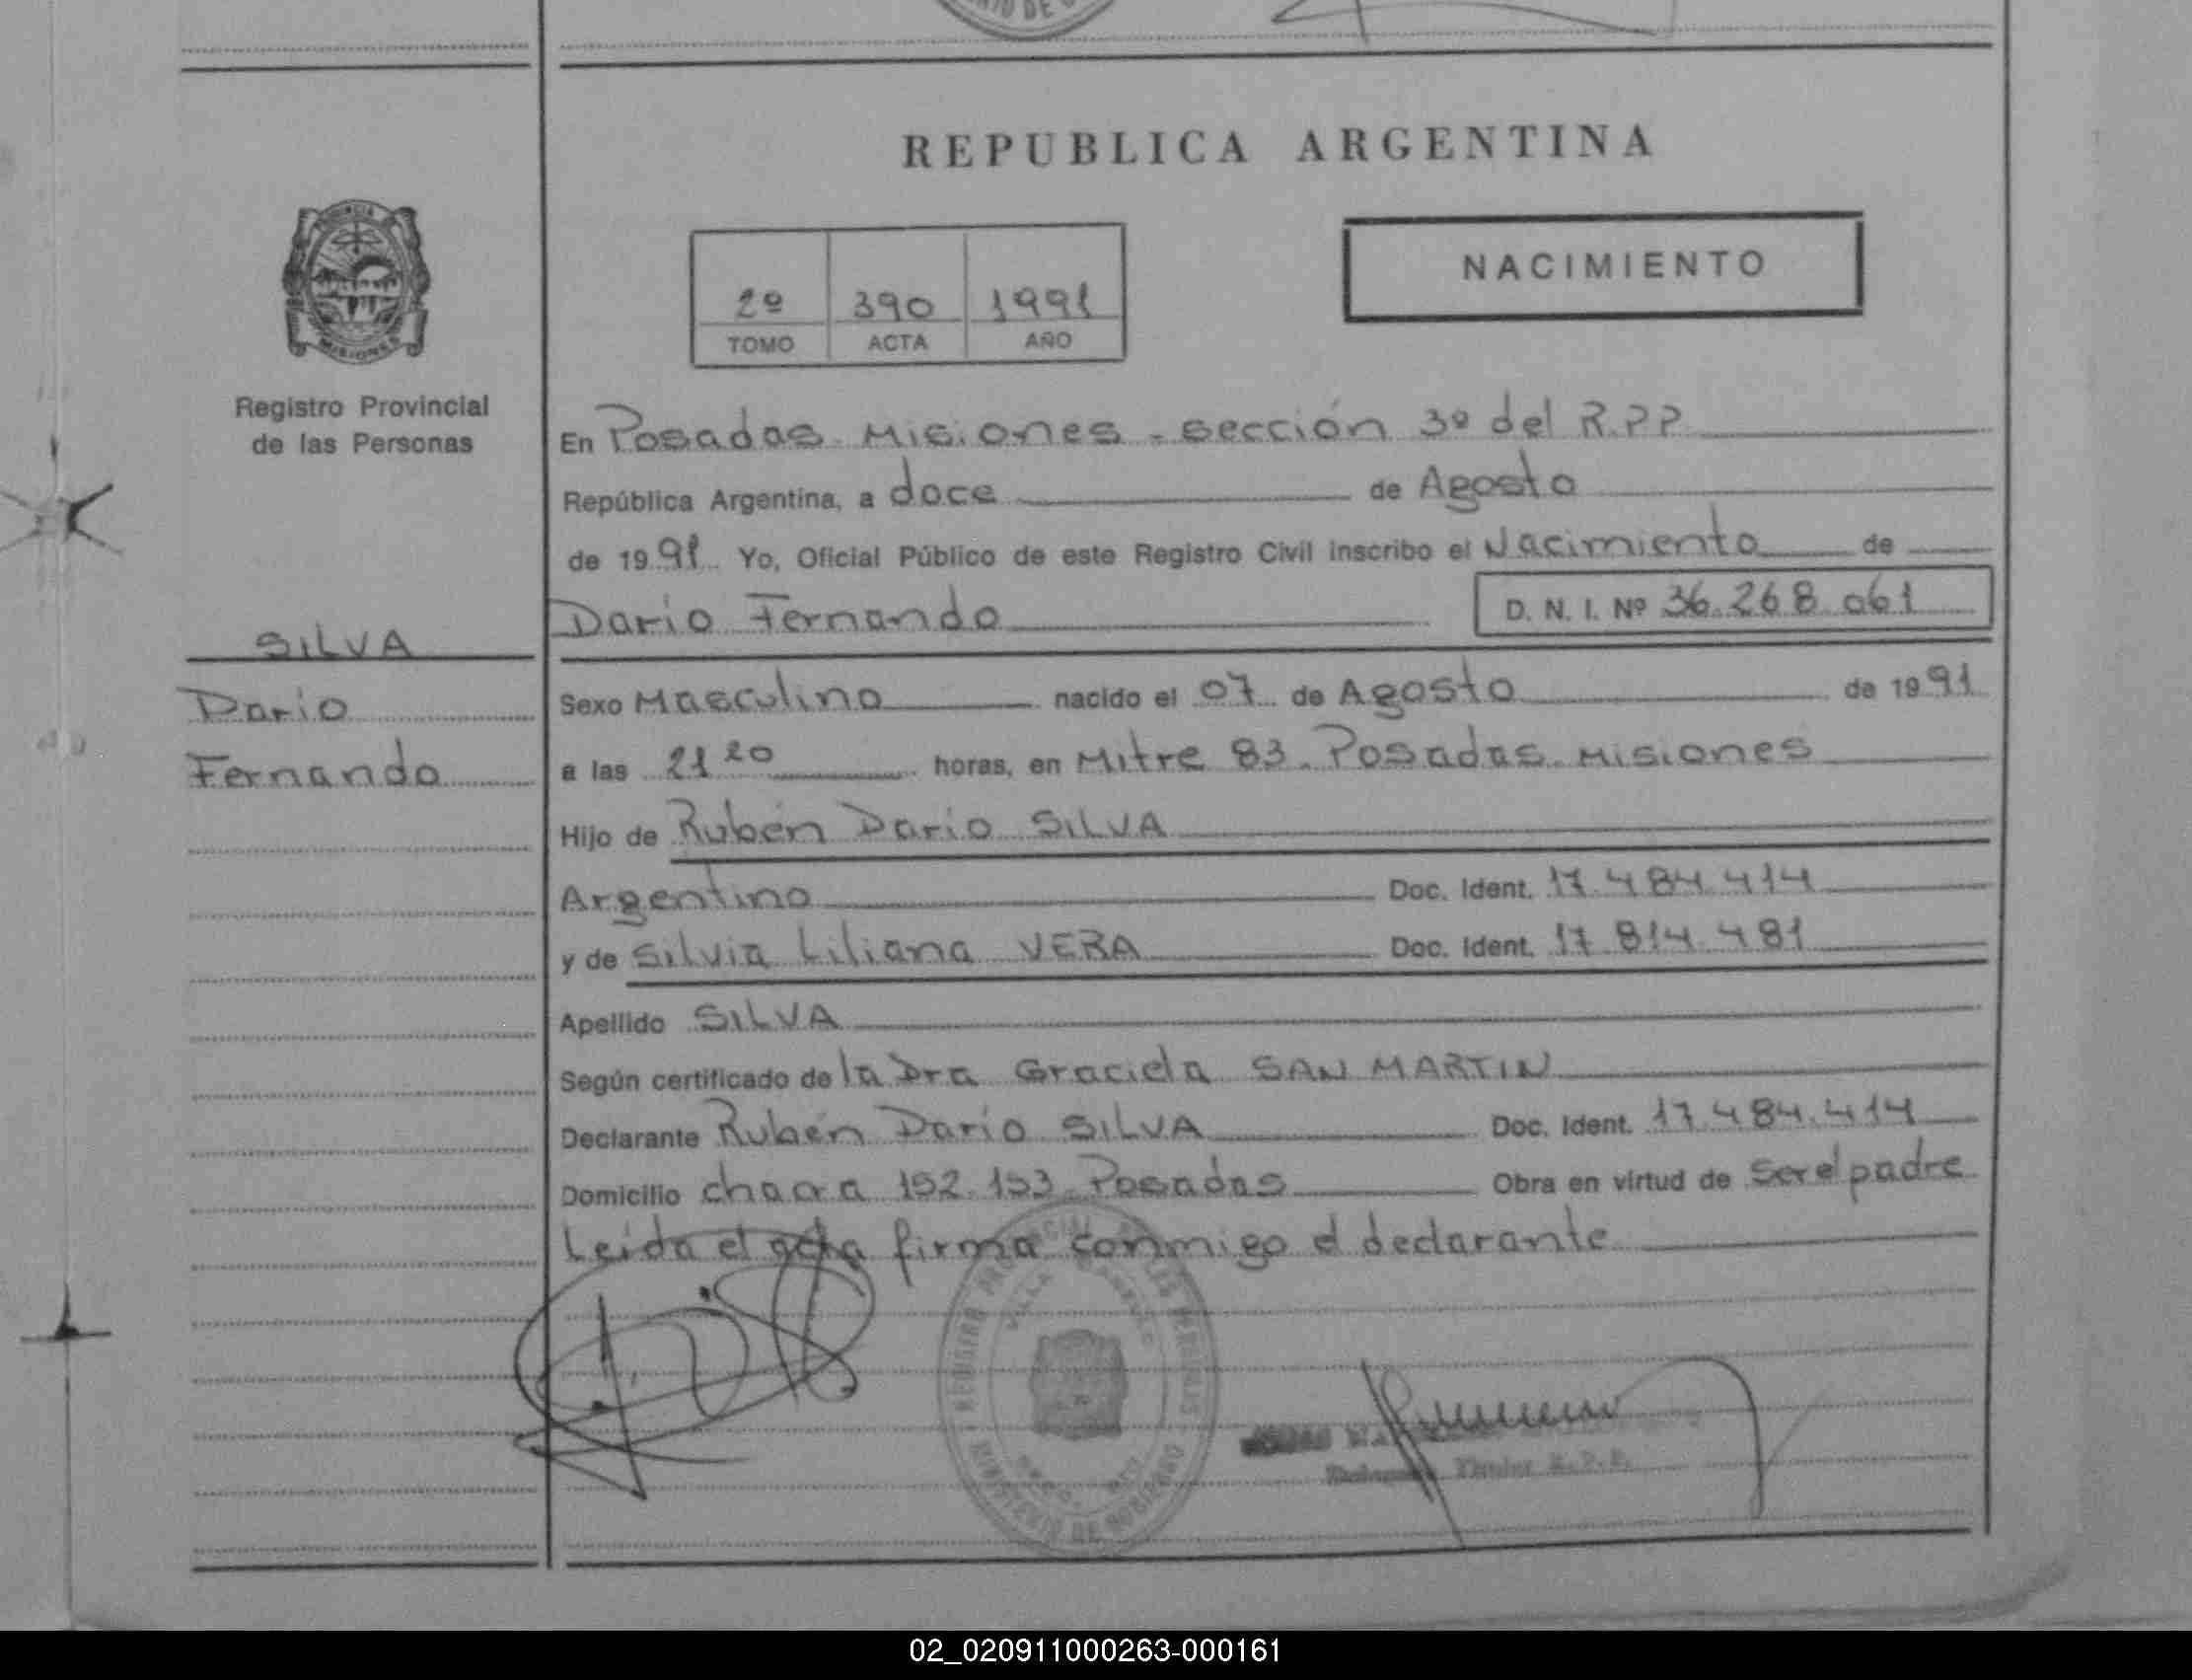 REPUBLICA ARGENTINA
NACIMIENTO
2º 390 1991
TOMO ACTA AÑO
MISIONES
Registro Provincial
de las Personas
En Posadas Misiones - sección 3º del R.P.P
República Argentina, a doce de Agosto
de 1991 Yo, Oficial Público de este Registro Civil inscribo el Nacimiento de
Dario Fernando D. N. I. Nº 36.268.061
SILVA
Dario
Fernando
Sexo Masculino nacido el 07 de Agosto de 1991
a las 21 20 horas, en Mitre 83. Posadas. Misiones
Hijo de Rubén Dario SILVA
Argentino Doc. Ident. 17.484.414
y de Silvia Liliana VERA Doc. Ident. 17.814.481
Apellido SILVA
Según certificado de la Dra Graciela SAN MARTIN
Declarante Rubén Dario SILVA Doc. Ident. 17.484.414
Domicilio chacra 152.153 Posadas Obra en virtud de ser el padre
Leida el acta firma conmigo el declarante
MINISTERIO DE GOBIERNO
VILLA
Titular R.P.P.
02_020911000263-000161